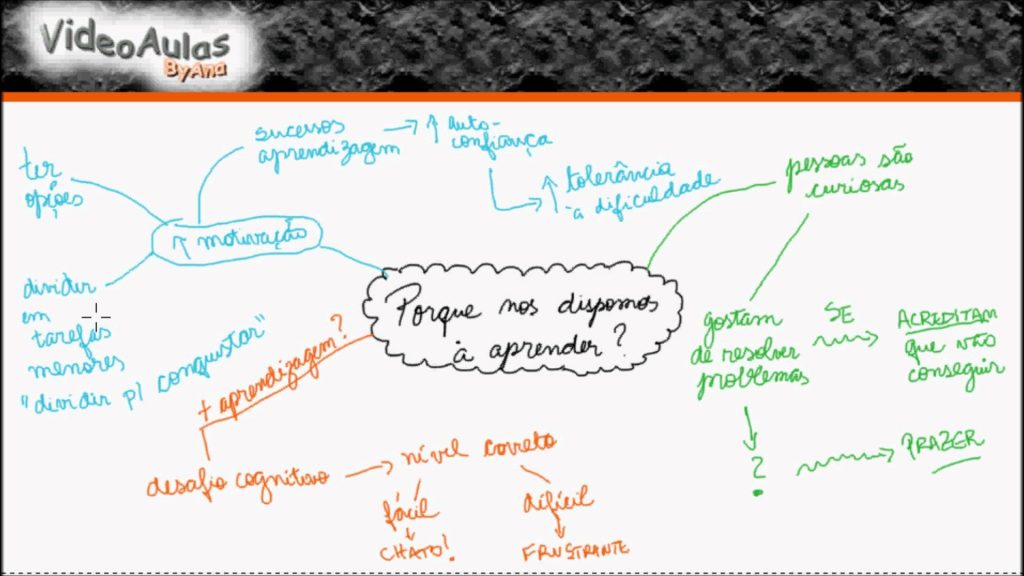 VideoAulas
ByAna
ter
opções
sucessos
aprendizagem
↑ auto-
confiança
↑ tolerância
a dificuldade
↑ motivação
dividir
em
tarefas
menores
"dividir p/ conquistar"
Porque nos dispomos
à aprender?
pessoas são
curiosas
gostam
de resolver
problemas
SE
ACREDITAM
que vão
conseguir
?
PRAZER
+ aprendizagem?
desafio cognitivo
nível correto
fácil
CHATO!
difícil
FRUSTRANTE